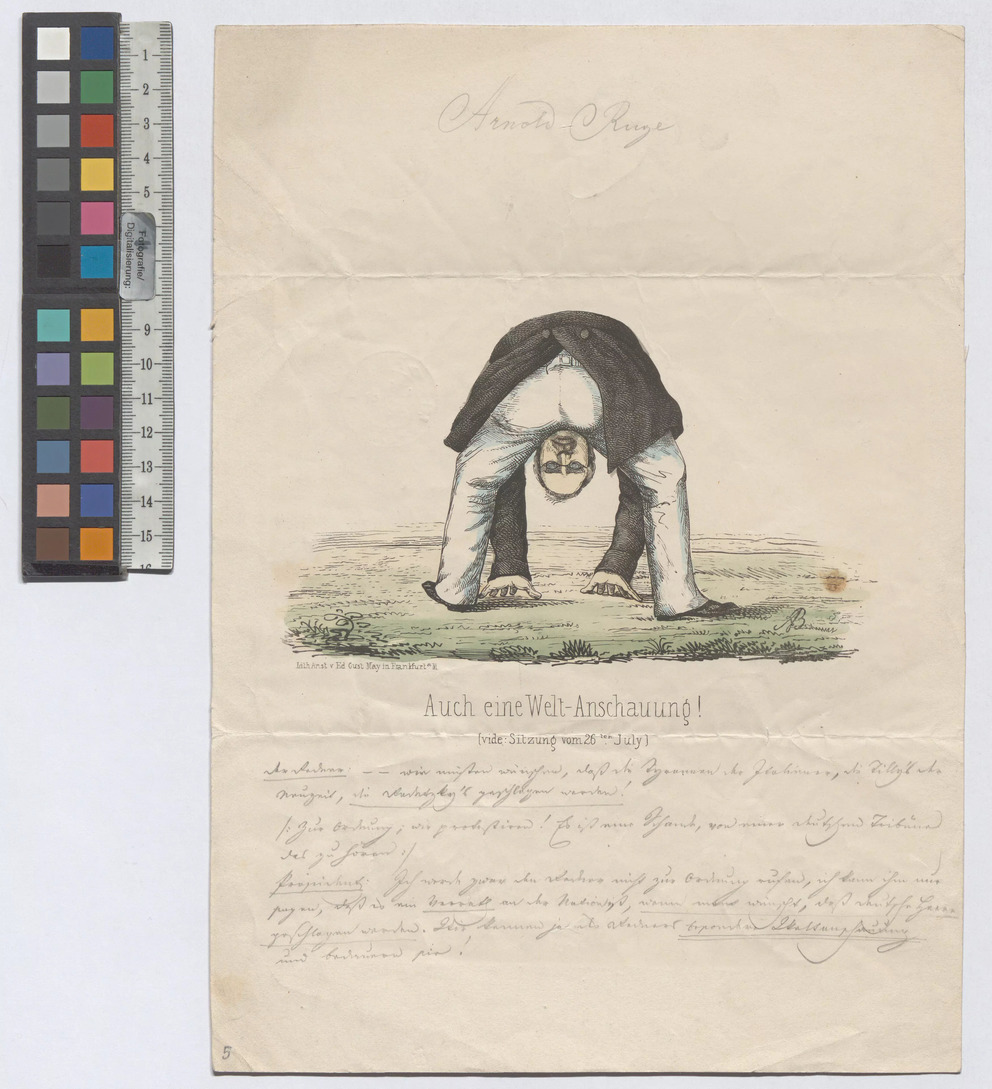 Arnold Ruge
1
2
3
4
5
Fotografie/
Digitalisierung:
9
10
11
12
13
14
15
16
ABoninus
Lith Anst v Ed Gust May in Frankfurt a. M.
Auch eine Welt-Anschauung!
(vide: Sitzung vom 26ten July)
der Redner: –– wir müßten wünschen, daß die Tyrannen der Italiener, die Tilly's der
Neuzeit, die Radetzky's geschlagen werden!
/: Zur Ordnung; wir protestiren! Es ist eine Schande, von einer deutschen Tribüne
das zu hören :/
Präsident: Ich werde zwar den Redner nicht zur Ordnung rufen, ich kann ihm nur
sagen, daß es ein Verrath an der Nation ist, wenn man wünscht, daß deutsche Heere
geschlagen werden. Wir kennen ja des Redners besondere Weltanschauung
und bedauern sie!
5